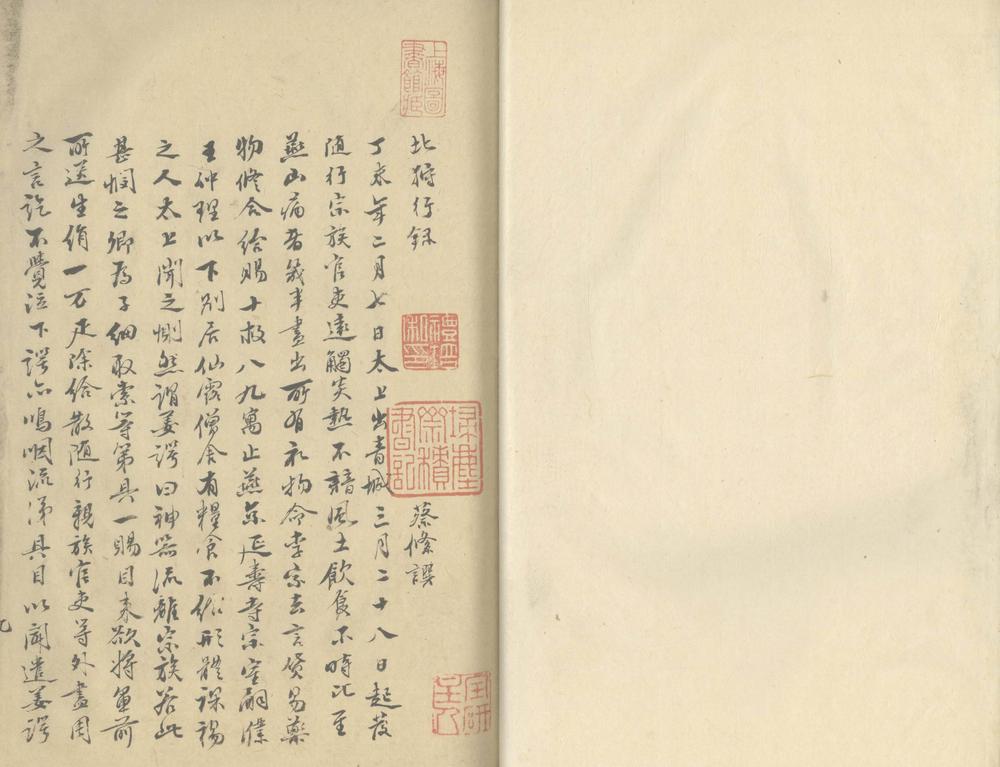 北狩行録
蔡絛譔
丁未年二月七日太上出青城三月二十八日起發
隨行宗族官吏遠觸炎熱不諳風土飲食不時比至
燕山病者幾半盡出所有衣物命李宗言貨易藥
物修合給賜十救八九寓止燕京延壽寺宗室嗣濮
王仲理以下別居仙露僧舍有糧食不給形體裸裼
之人太上聞之惻然謂姜諤曰神器流離宗族若此
甚憫之卿為子細取索等第具一賜目来欲将軍前
所送生絹一万疋除給散随行親族官吏等外盡用
之言訖不覺泣下諤亦嗚咽流涕具目以聞遣姜諤
上海圖書館藏
掃塵齋積書記
禮培私印